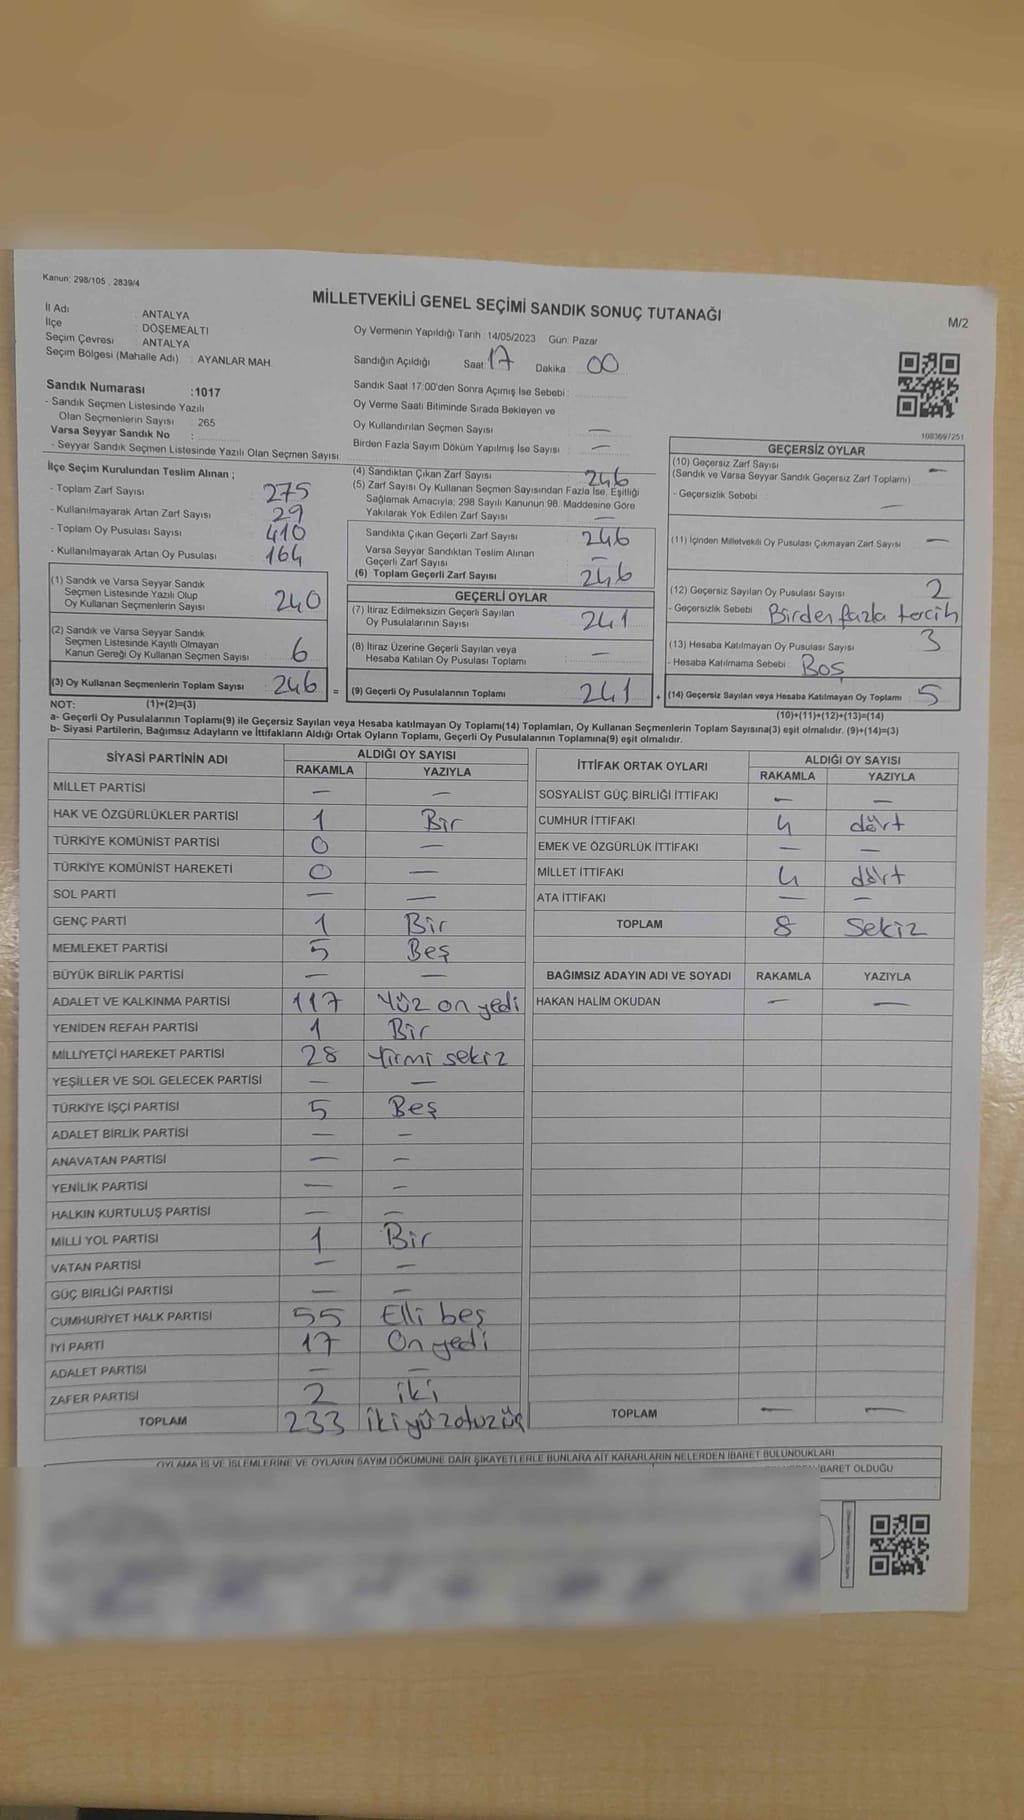 Kanun; 298/105 , 2839/4
MİLLETVEKİLİ GENEL SEÇİMİ SANDIK SONUÇ TUTANAĞI
M/2
İl Adı : ANTALYA
İlçe : DÖŞEMEALTI
Seçim Çevresi : ANTALYA
Seçim Bölgesi (Mahalle Adı) : AYANLAR MAH.
Sandık Numarası :1017
- Sandık Seçmen Listesinde Yazılı
Olan Seçmenlerin Sayısı : 265
Varsa Seyyar Sandık No :
- Seyyar Sandık Seçmen Listesinde Yazılı Olan Seçmen Sayısı:
Oy Vermenin Yapıldığı Tarih :14/05/2023 Gün: Pazar
Sandığın Açıldığı Saat: 17 Dakika : 00
Sandık Saat 17:00'den Sonra Açımış İse Sebebi :
Oy Verme Saati Bitiminde Sırada Bekleyen ve
Oy Kullandırılan Seçmen Sayısı : —
Birden Fazla Sayım Döküm Yapılmış İse Sayısı : —
1083697251
İlçe Seçim Kurulundan Teslim Alınan ;
- Toplam Zarf Sayısı : 275
- Kullanılmayarak Artan Zarf Sayısı : 29
- Toplam Oy Pusulası Sayısı : 410
- Kullanılmayarak Artan Oy Pusulası : 164
(1) Sandık ve Varsa Seyyar Sandık
Seçmen Listesinde Yazılı Olup
Oy Kullanan Seçmenlerin Sayısı : 240
(2) Sandık ve Varsa Seyyar Sandık
Seçmen Listesinde Kayıtlı Olmayan
Kanun Gereği Oy Kullanan Seçmen Sayısı : 6
(3) Oy Kullanan Seçmenlerin Toplam Sayısı : 246 =
(4) Sandıktan Çıkan Zarf Sayısı : 246
(5) Zarf Sayısı Oy Kullanan Seçmen Sayısından Fazla İse, Eşitliği
Sağlamak Amacıyla; 298 Sayılı Kanunun 98. Maddesine Göre
Yakılarak Yok Edilen Zarf Sayısı : —
Sandıkta Çıkan Geçerli Zarf Sayısı : 246
Varsa Seyyar Sandıktan Teslim Alınan
Geçerli Zarf Sayısı : —
(6) Toplam Geçerli Zarf Sayısı : 246
GEÇERLİ OYLAR
(7) İtiraz Edilmeksizin Geçerli Sayılan
Oy Pusulalarının Sayısı : 241
(8) İtiraz Üzerine Geçerli Sayılan veya
Hesaba Katılan Oy Pusulası Toplamı : —
(9) Geçerli Oy Pusulalarının Toplamı : 241 +
GEÇERSİZ OYLAR
(10) Geçersiz Zarf Sayısı : —
(Sandık ve Varsa Seyyar Sandık Geçersiz Zarf Toplamı)
- Geçersizlik Sebebi : —
(11) İçinden Milletvekili Oy Pusulası Çıkmayan Zarf Sayısı : —
(12) Geçersiz Sayılan Oy Pusulası Sayısı : 2
- Geçersizlik Sebebi : Birden fazla tercih
(13) Hesaba Katılmayan Oy Pusulası Sayısı : 3
- Hesaba Katılmama Sebebi : Boş
(14) Geçersiz Sayılan veya Hesaba Katılmayan Oy Toplamı : 5
NOT: (1)+(2)=(3)
(10)+(11)+(12)+(13)=(14)
a- Geçerli Oy Pusulalarının Toplamı(9) ile Geçersiz Sayılan veya Hesaba katılmayan Oy Toplamı(14) Toplamları, Oy Kullanan Seçmenlerin Toplam Sayısına(3) eşit olmalıdır. (9)+(14)=(3)
b- Siyasi Partilerin, Bağımsız Adayların ve İttifakların Aldığı Ortak Oyların Toplamı, Geçerli Oy Pusulalarının Toplamına(9) eşit olmalıdır.
SİYASİ PARTİNİN ADI ALDIĞI OY SAYISI
RAKAMLA YAZIYLA
MİLLET PARTİSİ — —
HAK VE ÖZGÜRLÜKLER PARTİSİ 1 Bir
TÜRKİYE KOMÜNİST PARTİSİ 0 —
TÜRKİYE KOMÜNİST HAREKETİ 0 —
SOL PARTİ — —
GENÇ PARTİ 1 Bir
MEMLEKET PARTİSİ 5 Beş
BÜYÜK BİRLİK PARTİSİ — —
ADALET VE KALKINMA PARTİSİ 117 Yüz on yedi
YENİDEN REFAH PARTİSİ 1 Bir
MİLLİYETÇİ HAREKET PARTİSİ 28 Yirmi sekiz
YEŞİLLER VE SOL GELECEK PARTİSİ — —
TÜRKİYE İŞÇİ PARTİSİ 5 Beş
ADALET BİRLİK PARTİSİ — —
ANAVATAN PARTİSİ — —
YENİLİK PARTİSİ — —
HALKIN KURTULUŞ PARTİSİ — —
MİLLİ YOL PARTİSİ 1 Bir
VATAN PARTİSİ — —
GÜÇ BİRLİĞİ PARTİSİ — —
CUMHURİYET HALK PARTİSİ 55 Elli beş
İYİ PARTİ 17 On yedi
ADALET PARTİSİ — —
ZAFER PARTİSİ 2 iki
TOPLAM 233 ikiyüzotuzüç
İTTİFAK ORTAK OYLARI ALDIĞI OY SAYISI
RAKAMLA YAZIYLA
SOSYALİST GÜÇ BİRLİĞİ İTTİFAKI — —
CUMHUR İTTİFAKI 4 dört
EMEK VE ÖZGÜRLÜK İTTİFAKI — —
MİLLET İTTİFAKI 4 dört
ATA İTTİFAKI — —
TOPLAM 8 Sekiz
BAĞIMSIZ ADAYIN ADI VE SOYADI RAKAMLA YAZIYLA
HAKAN HALİM OKUDAN — —
TOPLAM — —
OYLAMA İŞ VE İŞLEMLERİNE VE OYLARIN SAYIM DÖKÜMÜNE DAİR ŞİKAYETLERLE BUNLARA AİT KARARLARIN NELERDEN İBARET BULUNDUKLARI
İBARET OLDUĞU